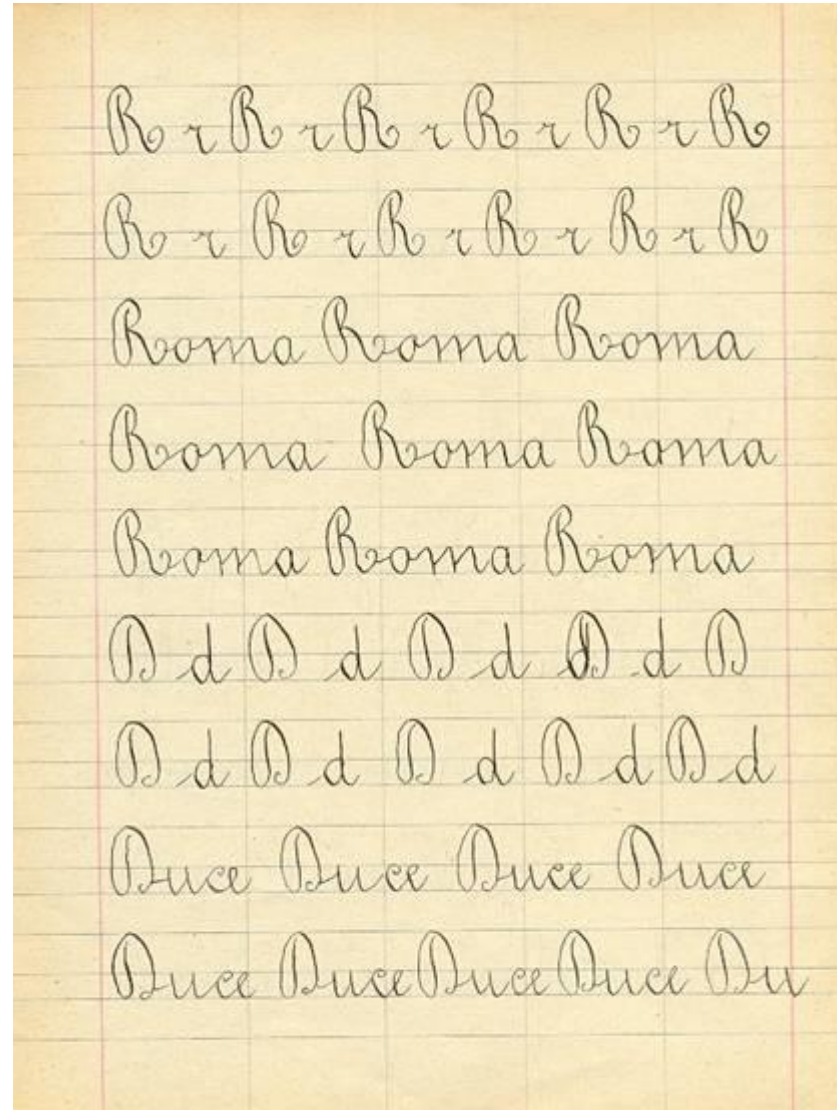 R r R r R r R r R r R
R r R r R r R r R r R
Roma Roma Roma
Roma Roma Roma
Roma Roma Roma
D d D d D d D d D
D d D d D d D d D d
Duce Duce Duce Duce
Duce Duce Duce Duce Du